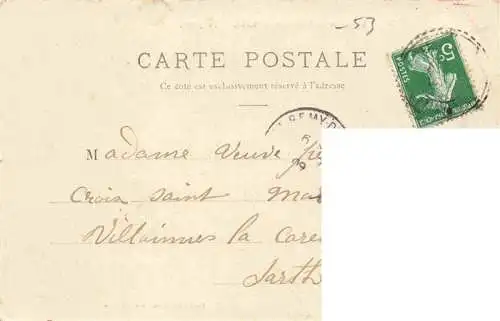 -53
CARTE POSTALE
Ce côté est exclusivement réservé à l'adresse
5c
POSTES
REMY
Madame Veuve
Croix Saint
Villainnes la Care
Sarth